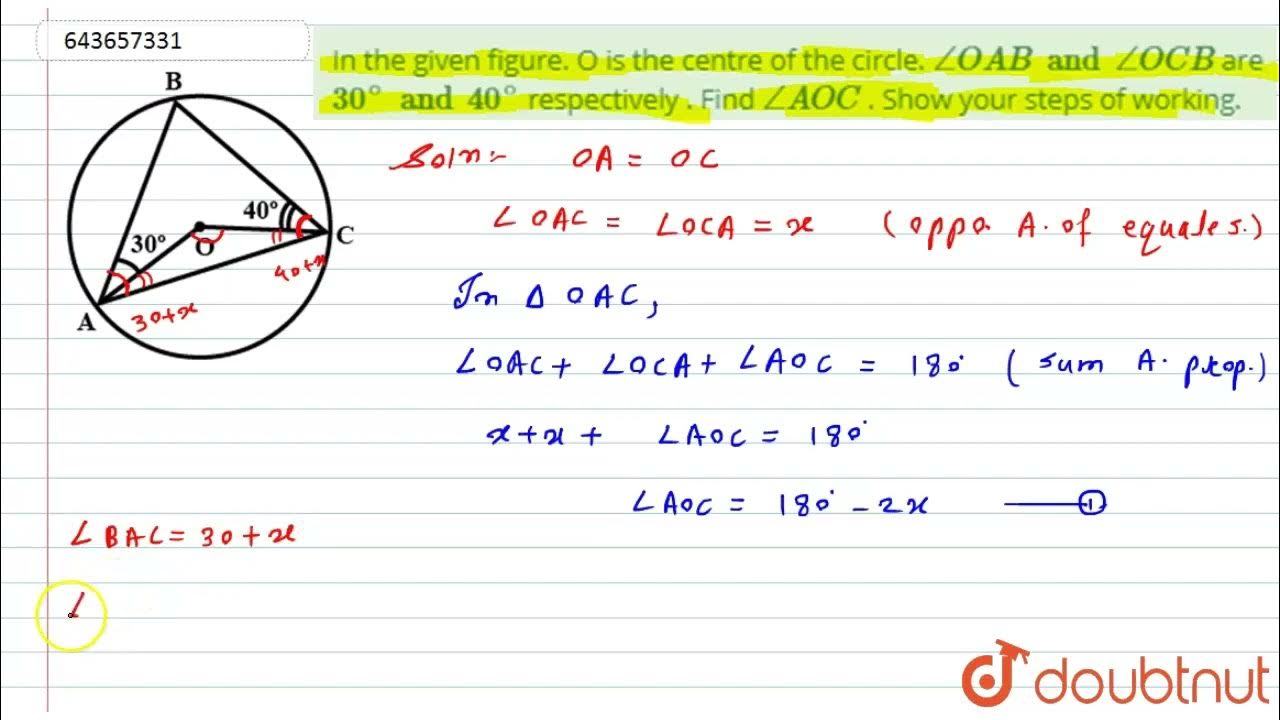 643657331
In the given figure. O is the centre of the circle. ∠OAB and ∠OCB are
30° and 40° respectively . Find ∠AOC . Show your steps of working.
B
40°
O
C
30°
A
30+x
40+x
Soln:- OA = OC
∠OAC = ∠OCA = x (oppo A. of equal s.)
In Δ OAC,
∠OAC + ∠OCA + ∠AOC = 180° ( sum A. prop.)
x + x + ∠AOC = 180°
∠AOC = 180° - 2x —— ①
∠BAC = 30 + x
∠
doubtnut